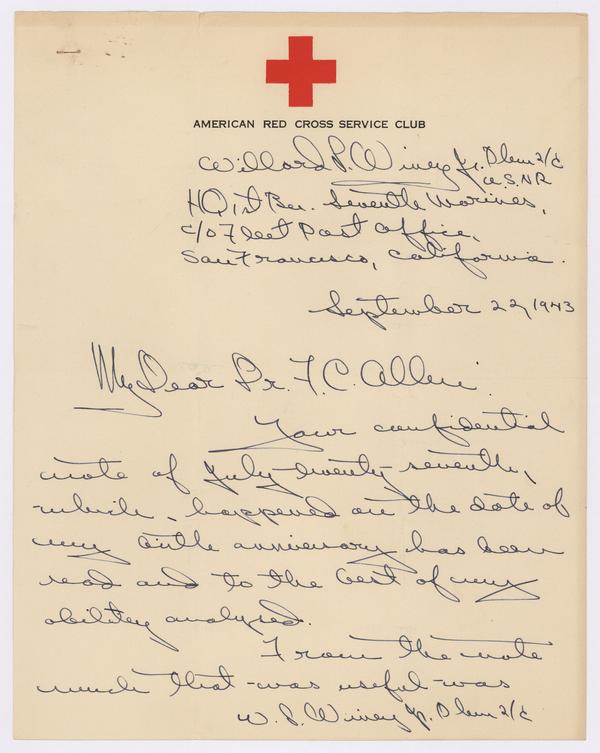 AMERICAN RED CROSS SERVICE CLUB
Willard P. Winey Jr. Phm 2/c
U.S.N.R
HQ 1st Bn. Seventh Marines,
c/o Fleet Post Office,
San Francisco, California.
September 22, 1943
My Dear Dr. F. C. Allen:
Your confidential
note of July twenty-seventh,
which - happened on the date of
my birth anniversary has been
read and to the best of my
ability analyzed.
From the note
much that was useful was
W. P. Winey Jr. Phm 2/c